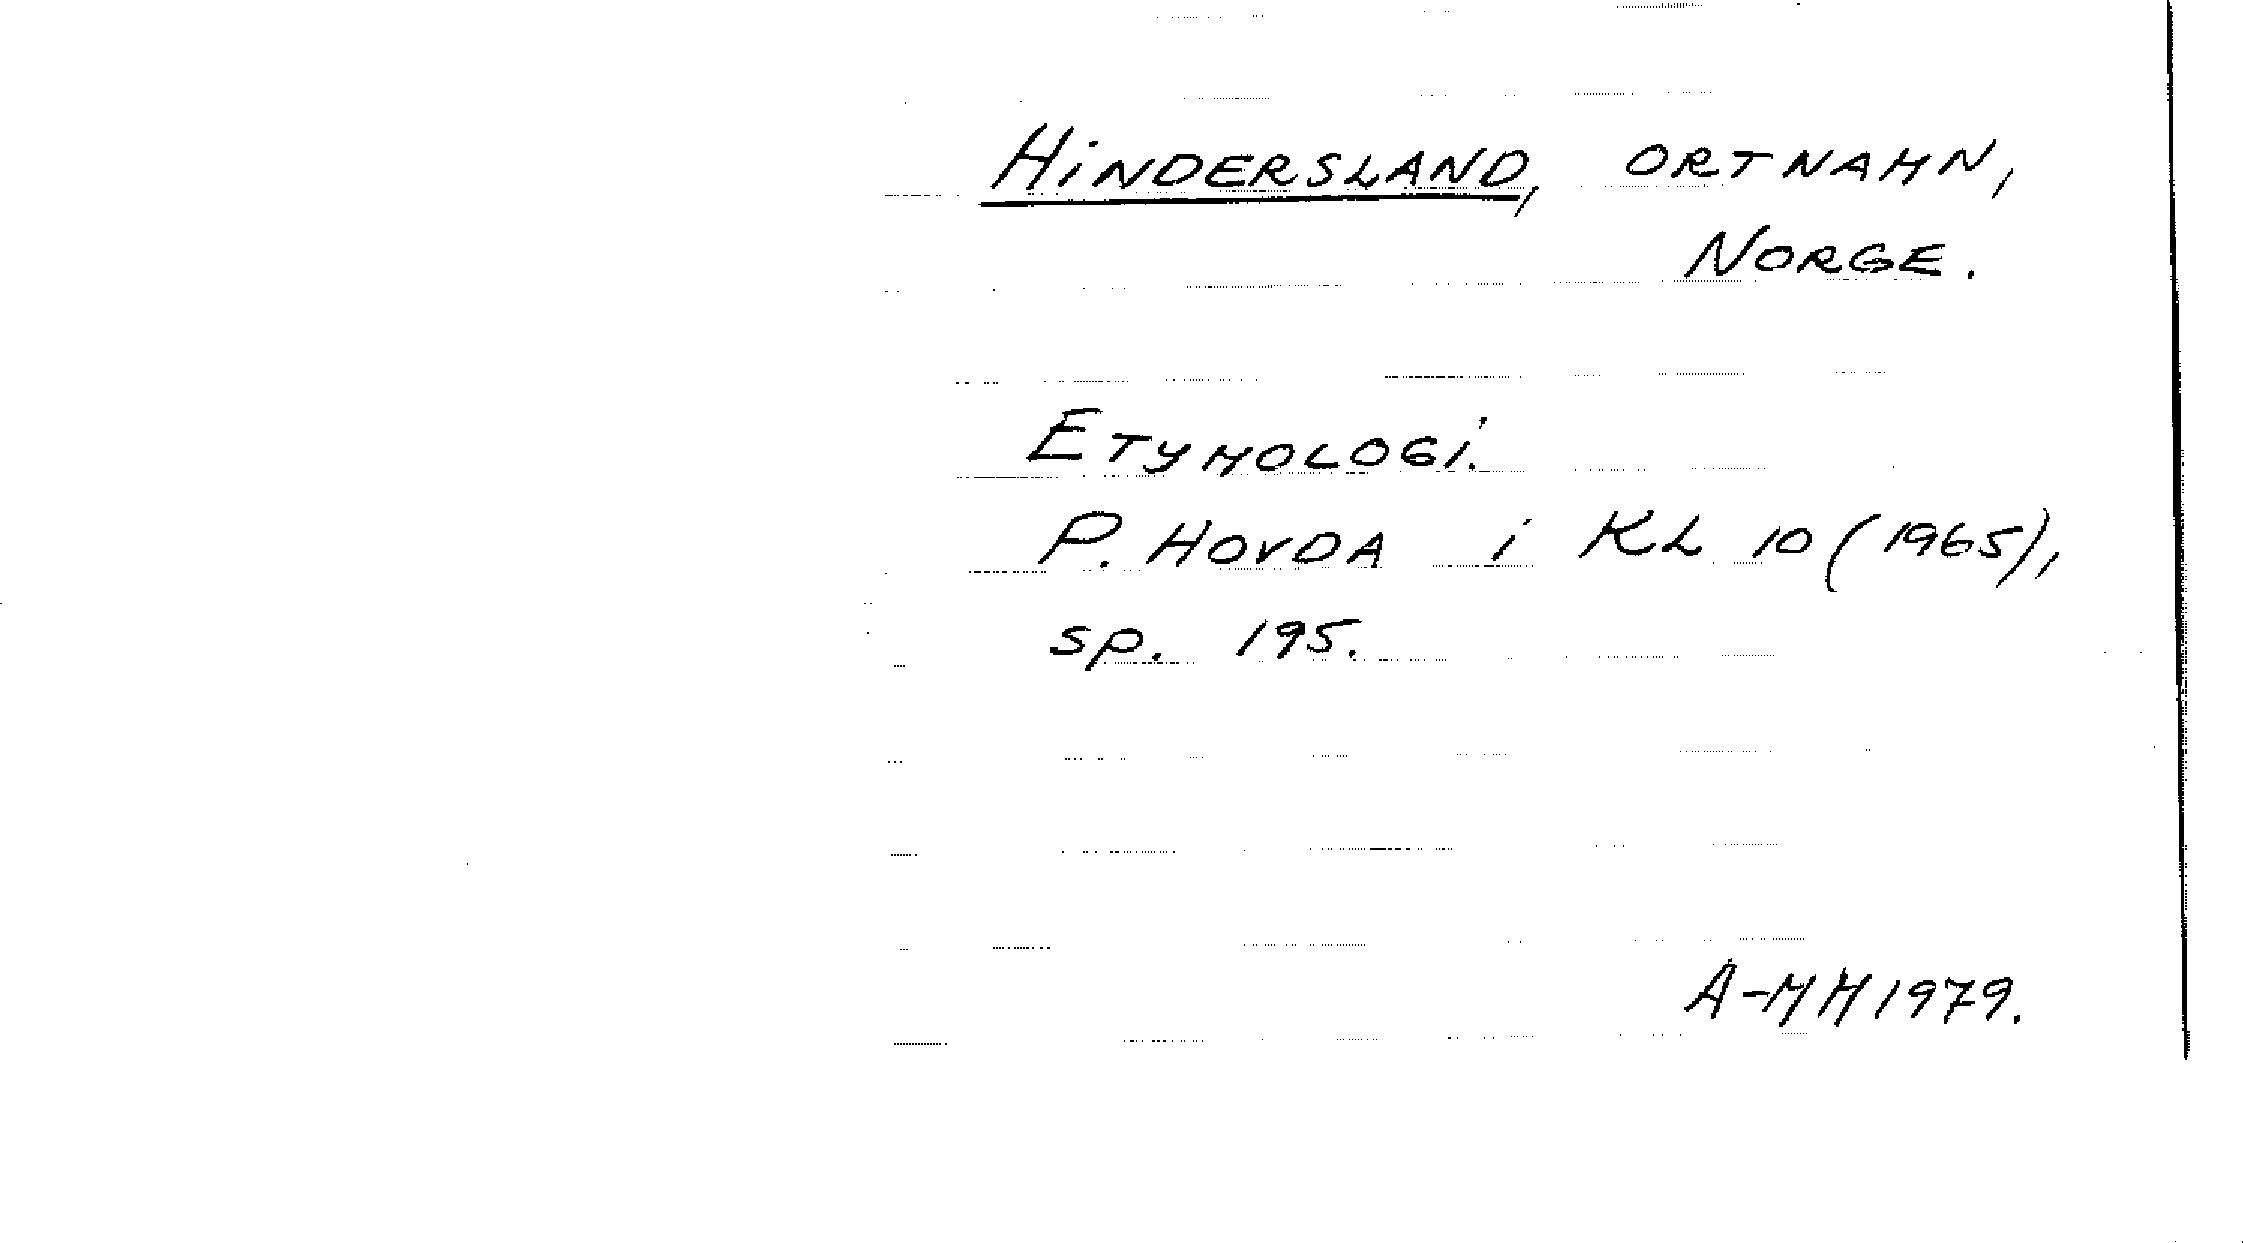 HINDERSLAND, ORTNAMN,
NORGE.
ETYMOLOGI.
P. HOVDA i KL 10 (1965),
sp. 195.
A-MH 1979.